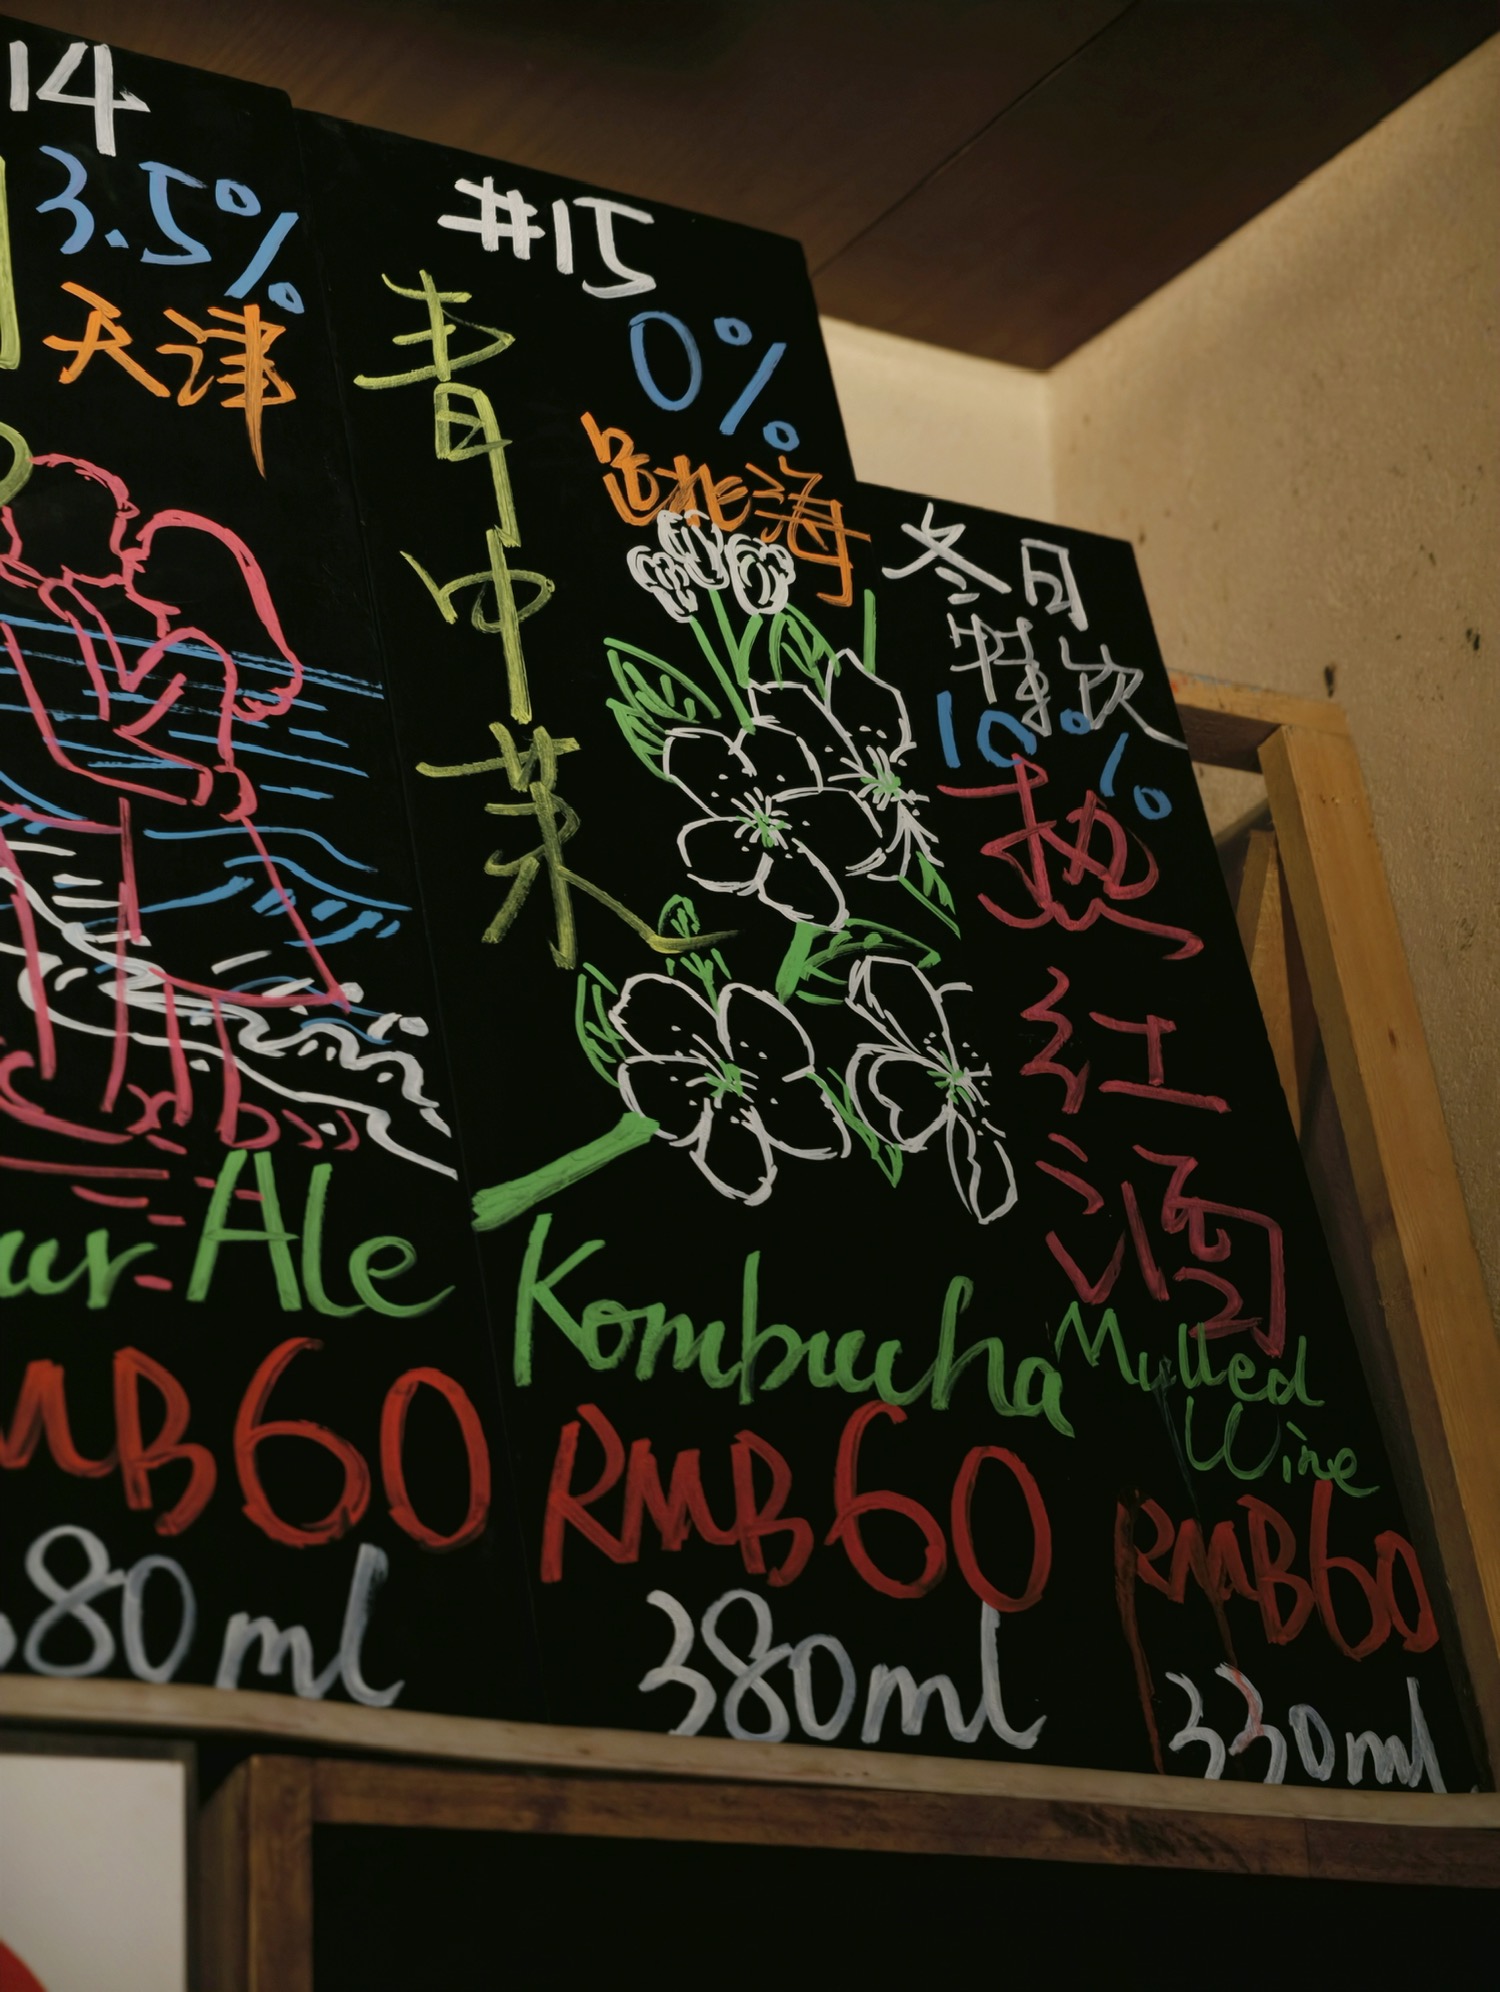 14
3.5%
天津
ur Ale
MB60
380ml
#15
0%
青中茶
海
Kombucha
RMB60
380ml
冬日
特饮
10%
热红酒
Mulled
Wine
RMB60
330ml